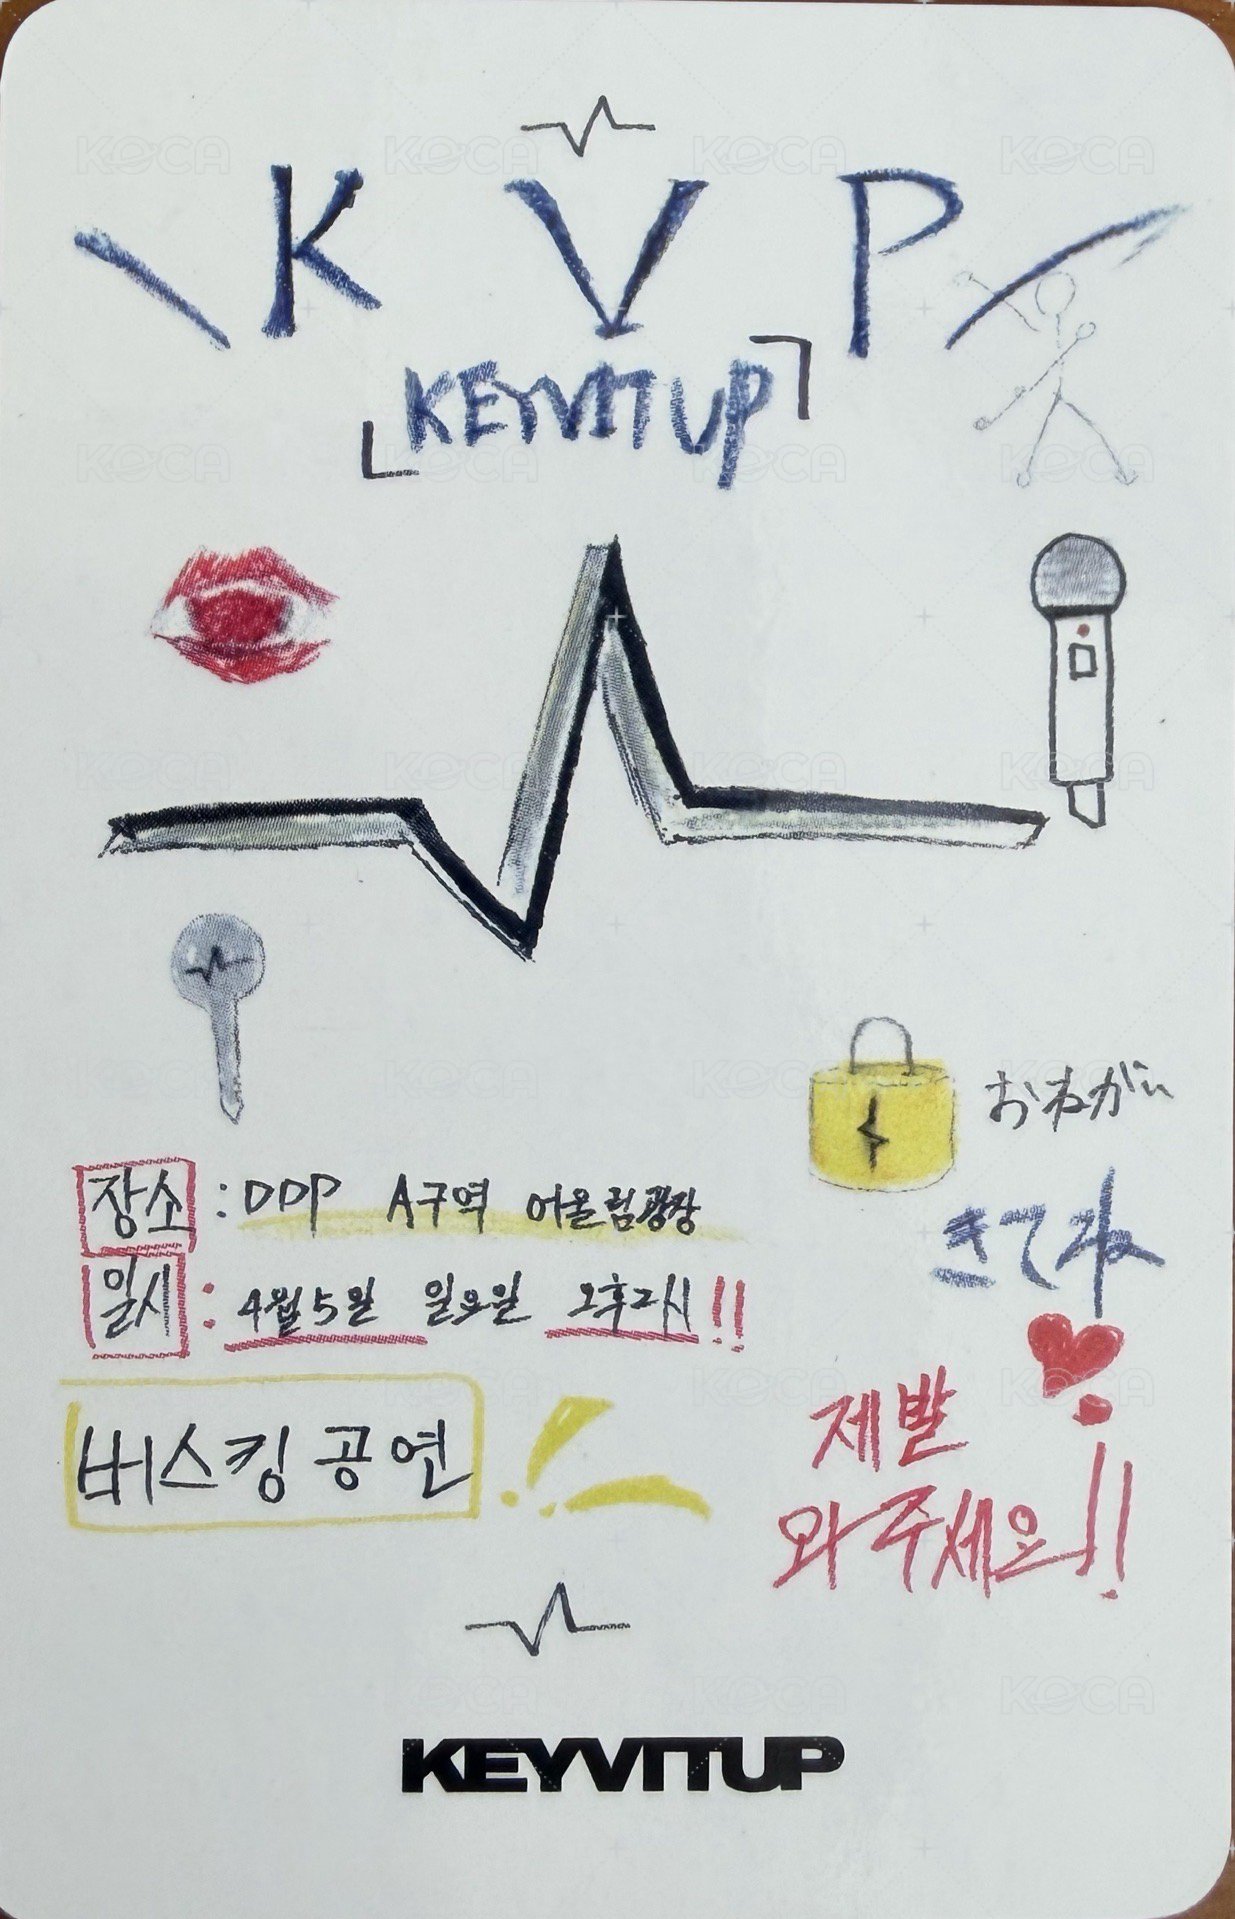 KVP
「KEYVITUP」
おねがい
장소 : DDP A구역 어울림광장
きてね
일시 : 4월 5일 일요일 오후2시!!
제발
와주세요!!
버스킹 공연
KEYVITUP
KOCA